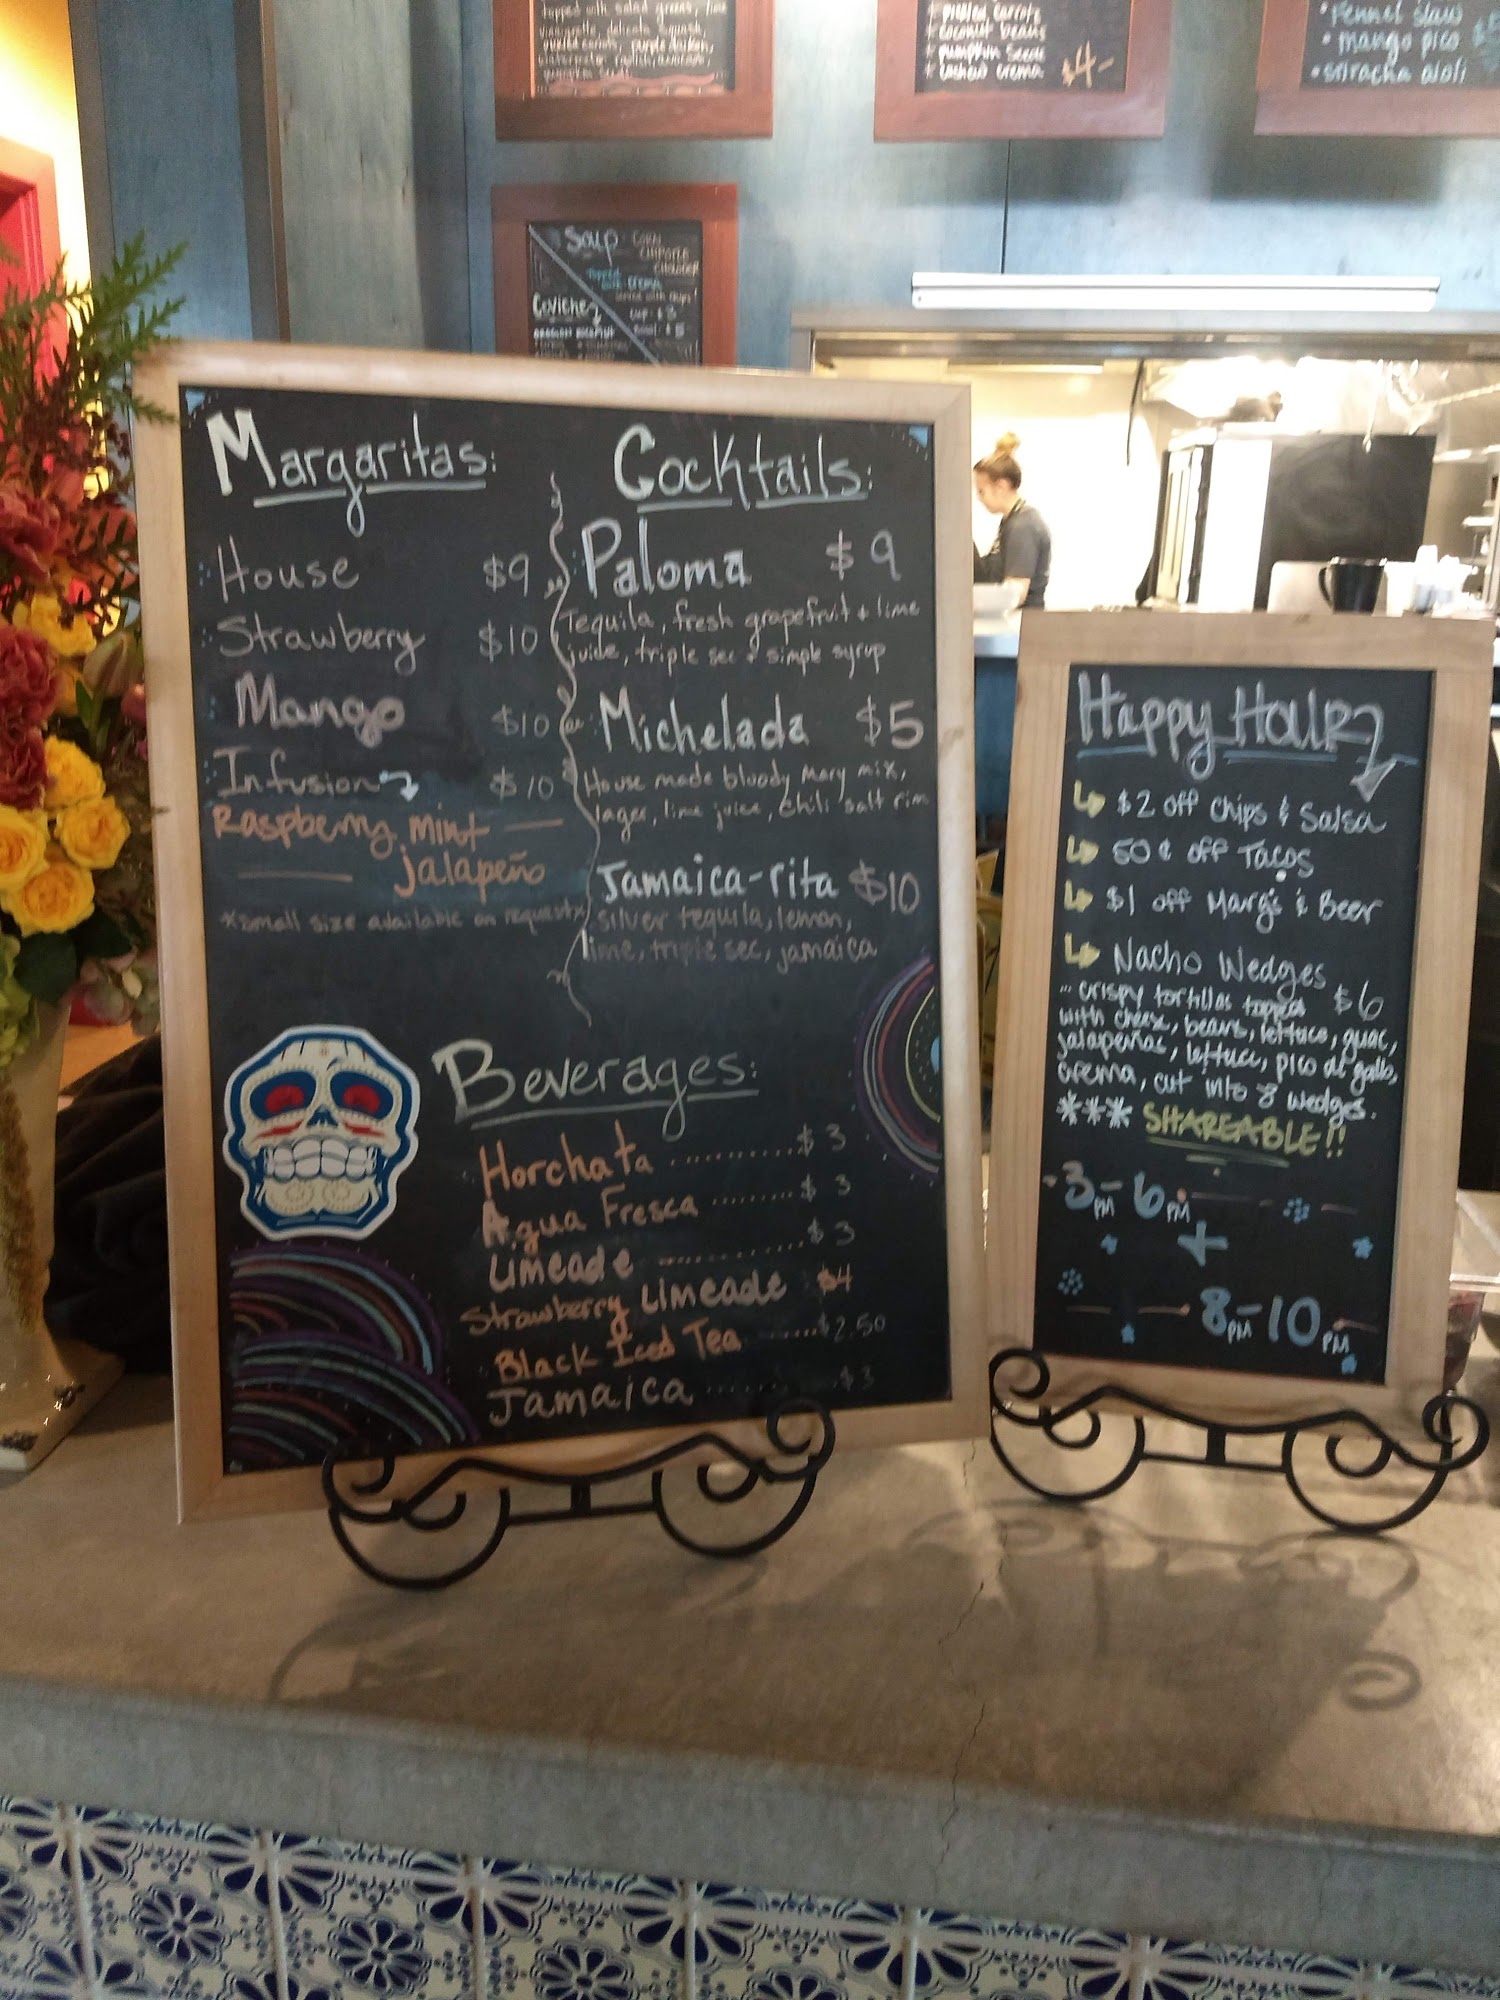 topped with salad greens, lime
vinaigrette, delicata squash,
pickled carrots, purple daikon,
watermelon radish, avocado,
pumpkin seeds
+ pickled carrots
+ coconut beans
+ pumpkin seeds
+ cashew crema $4-
• fennel slaw
• mango pico
• sriracha aioli
Soup CORN
CHIPOTLE
CHOWDER
topped
with crema
served with chips!
Ceviche
cup - $3
bowl - $5
Margaritas:
House $9
Strawberry $10
Mango $10
Infusion $10
Raspberry, mint
jalapeño
*small size available on request*
Cocktails:
Paloma $9
Tequila, fresh grapefruit + lime
juice, triple sec + simple syrup
Michelada $5
House made bloody mary mix,
lager, lime juice, chili salt rim
Jamaica-rita $10
silver tequila, lemon,
lime, triple sec, jamaica
Beverages:
Horchata ........... $3
Agua Fresca ......... $3
Limeade ............. $3
Strawberry Limeade $4
Black Iced Tea ...... $2.50
Jamaica ............. $3
Happy Hour
$2 off Chips & Salsa
50¢ off Tacos
$1 off Marg's & Beer
Nacho Wedges
$6
... crispy tortillas topped
with cheese, beans, lettuce, guac,
jalapeñas, lettuce, pico de gallo,
crema, cut into 8 wedges.
*** SHAREABLE!!
-3PM - 6PM
+
8PM - 10PM